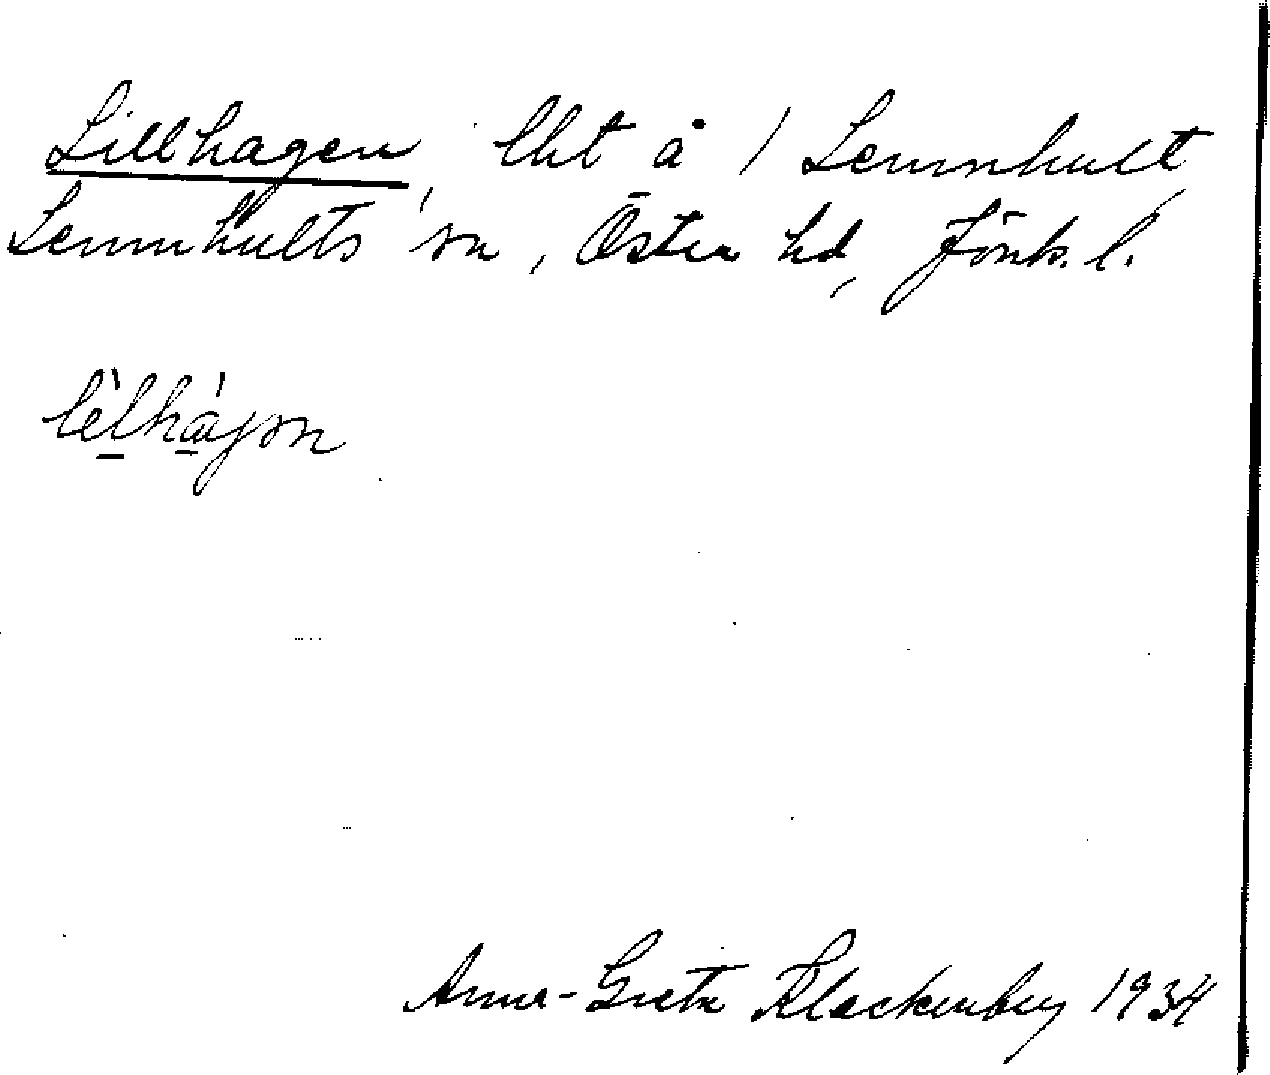 Lillhagen, lht å 1 Lemnhult,
Lemnhults sn, Östra hd, Jönk. l.
lèlhàgən
Anna-Greta Klackenberg 1934